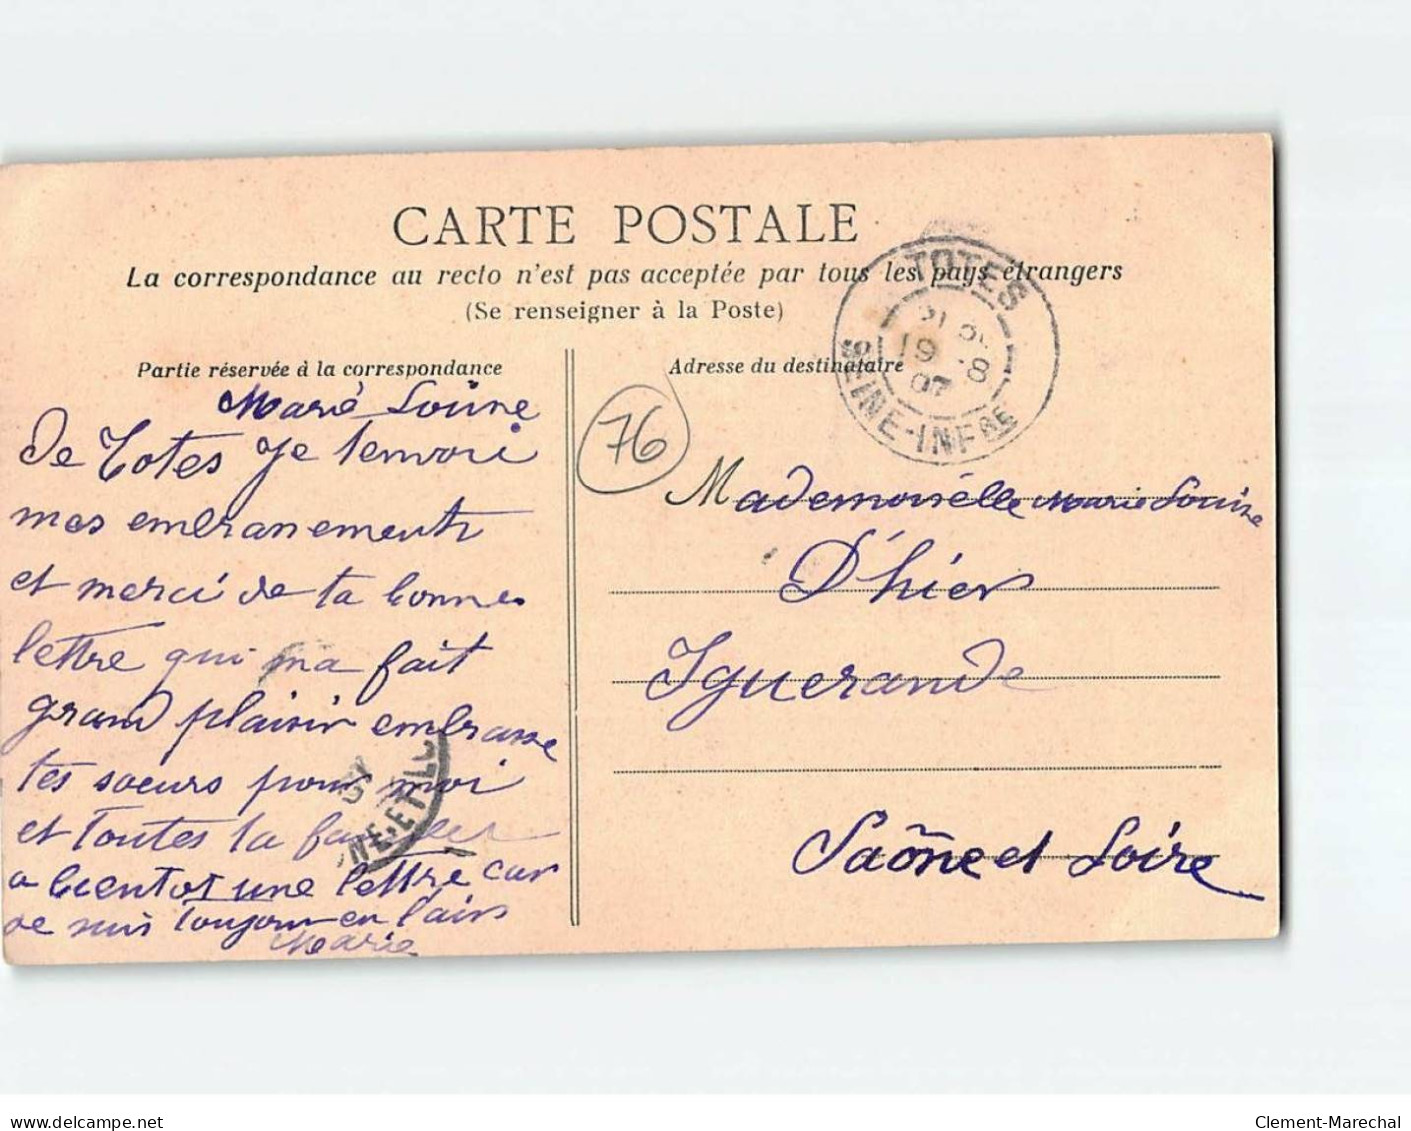 CARTE POSTALE
La correspondance au recto n'est pas acceptée par tous les pays étrangers
(Se renseigner à la Poste)
Partie réservée à la correspondance
Marie Louise
De Totes Je tenvoi
mes embrassements
et merci de ta bonne
lettre qui ma fait
grand plaisir embrasse
tes soeurs pour moi
et toutes ta
a bientot une lettre car
je suis toujour en l'air
Marie
76
Adresse du destinataire
TOTES
19 8
07
SEINE-INFRE
Mademoiselle Marie Louise
D'hier
Iguerande
Saône et Loire
NE-ET-L
delcampe.net
Clement-Marechal